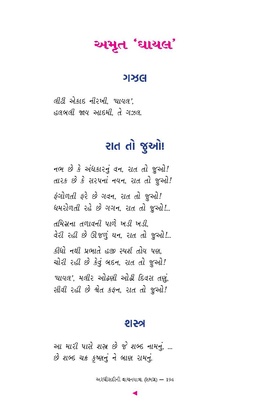 અમૃત ‘ઘાયલ’
ગઝલ
લીટી એકાદ નીરખી, ‘ઘાયલ’,
હલબલી જાય આદમી, તે ગઝલ.
રાત તો જુઓ!
નભ છે કે અંધકારનું વન, રાત તો જુઓ!
તારક છે કે સરપનાં નયન, રાત તો જુઓ!
ફંગોળતી ફરે છે ગવન, રાત તો જુઓ!
ધમરોળતી રહે છે ગગન, રાત તો જુઓ!..
તમિસ્રના તળાવની પાળે ખડી ખડી,
વેરી રહી છે ઊજળું ધન, રાત તો જુઓ!..
કીધો નથી પ્રભાતે હજી સ્પર્શ તોય પણ,
ચોરી રહી છે કેવું બદન, રાત તો જુઓ!
‘ઘાયલ’, મલીર ઓઢણી ઓઢી દિવસ તણું,
સીવી રહી છે શ્વેત કફન, રાત તો જુઓ!
શસ્ત્ર
આ મારી પાસે શસ્ત્ર છે જે શબ્દ નામનું, ...
છે શબ્દ ચક્ર કૃષ્ણનું ને બાણ રામનું.